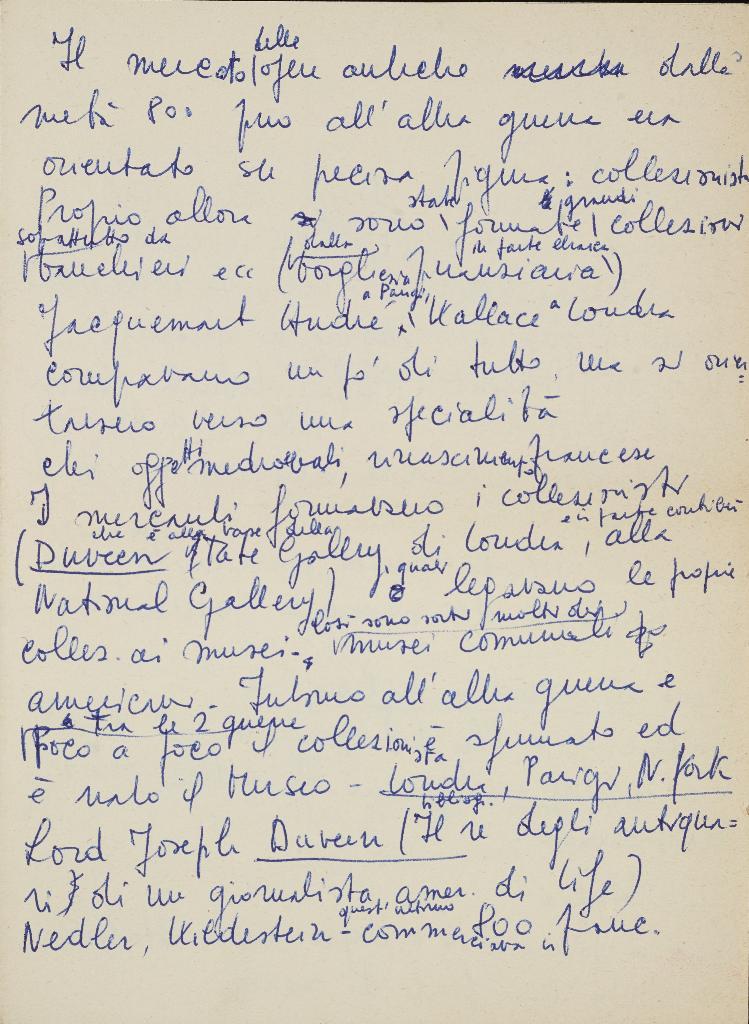 delle
Il mercato opere antiche dalla
metà 800 fino all'altra guerra era
orientato su precisa figura: collezionista
Proprio allora sono state formate grandi collezioni
soprattutto da dalla in parte ebraica
banchieri ecc (borghesia finanziaria)
a Parigi,
Jacquemart André, Wallace a Londra
compravano un pò di tutto, ma si orien=
tarono verso una specialità
chi oggetti medioevali, rinascimento francese
I mercanti formavano i collezionisti
che e in parte contribuì
(Duveen Tate Gallery di Londra, alla
National Gallery), quali legavano le proprie
Così sono sorti molti dei
collez. ai musei - musei comunali
americani - Intorno all'altra guerra e
tra le 2 guerre
poco a poco il collezionista è sfumato ed
è nato il Museo - Londra, Parigi, N. York
Lord Joseph Duveen (Il re degli antiqua=
ri di un giornalista amer. di life)
quest'ultimo
Nedler, Wildestein - commerciava in 800 franc.